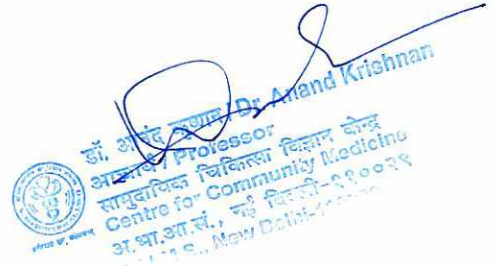 डॉ. आनंद कृष्णन/Dr. Anand Krishnan
आचार्य / Professor
सामुदायिक चिकित्सा विज्ञान केन्द्र
Centre for Community Medicine
अ.भा.आ.सं., नई दिल्ली-११००२९
New Delhi-